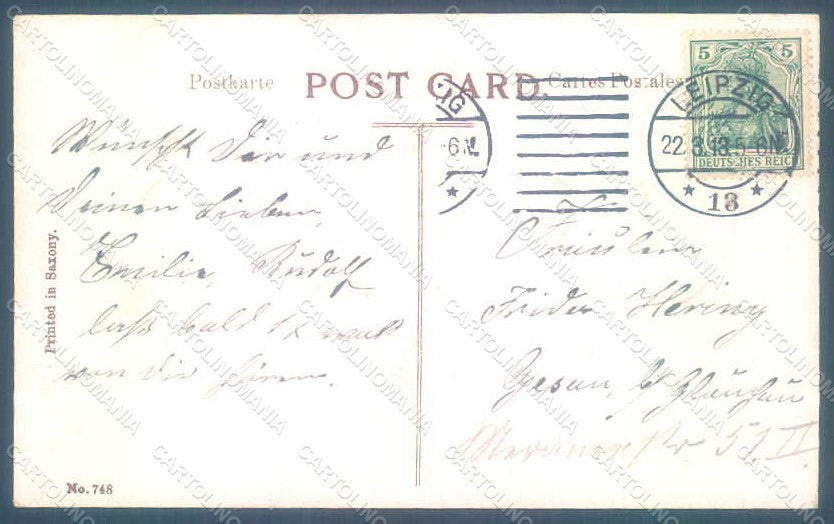 Postkarte POST CARD. Cartes Postales
5 5
DEUTSCHES REICH
LEIPZIG
22.3.13.5-6N.
* 13 *
IG
6N.
*
Wünscht Dir und
Deinen Lieben,
Emilie, Rudolf
laß bald 1x was
von dir hören.
Fräulein
Frida Hering
Gesau, b/Glauchau
Meraner Str 51 II
Printed in Saxony.
No. 748
CARTOLINOMANIA